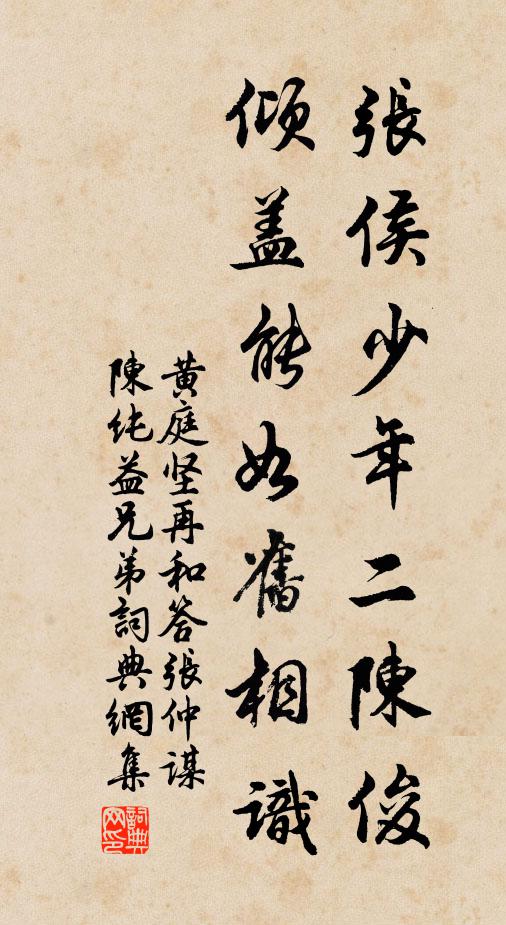 張侯少年二陳俊
傾盖能如舊相識
黄庭坚再和答張仲謀
陳純益兄弟詞典網集
詞典网印